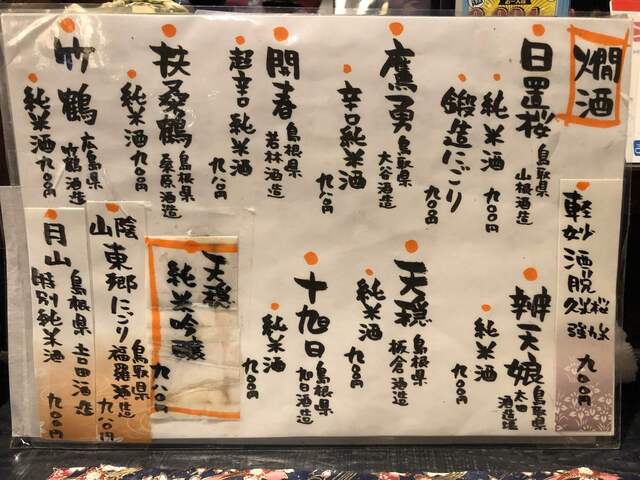 燗酒
日置桜
鳥取県
山根酒造
純米酒
九〇〇円
鍛造にごり
九〇〇円
鷹勇
鳥取県
大谷酒造
辛口純米酒
九八〇円
開春
島根県
若林酒造
超辛口純米酒
九八〇円
扶桑鶴
島根県
桑原酒造
純米酒
九〇〇円
竹鶴
広島県
竹鶴酒造
純米酒
九〇〇円
軽妙洒脱
九〇〇円
辨天娘
鳥取県
太田酒造
純米酒
九〇〇円
天穏
島根県
板倉酒造
純米酒
九〇〇円
十旭日
島根県
旭日酒造
純米酒
九〇〇円
天穏
純米吟醸
九八〇円
山陰東郷にごり
鳥取県
福羅酒造
九八〇円
月山
島根県
吉田酒造
特別純米酒
九〇〇円